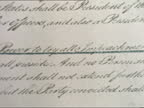 States shall be President of the
or Office, and also a President
Power to try all Impeachments
on. And no Person
ment shall not extend further
but the Party convicted shall